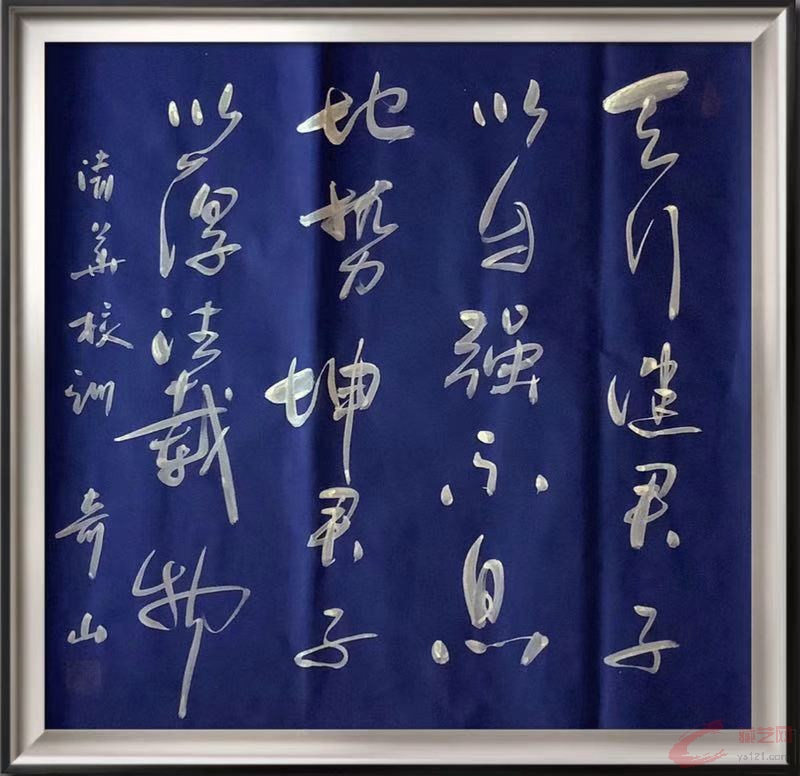 天行健君子
以自强不息
地势坤君子
以厚德载物
清华校训 奇山
雅艺网
ys121.com